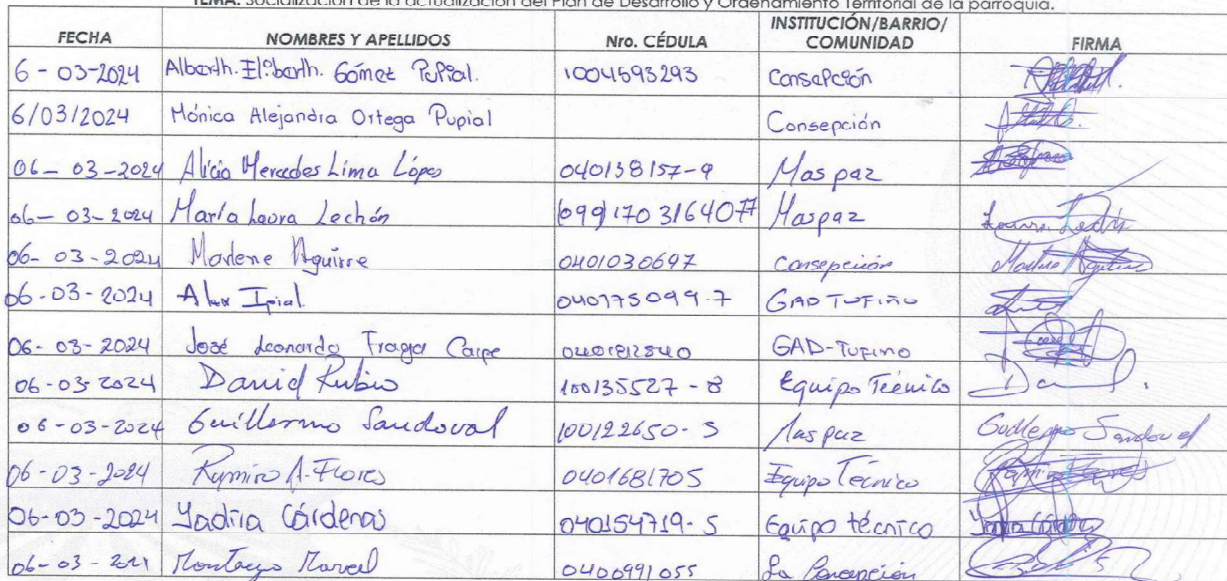 TEMA: Socialización de la actualización del Plan de Desarrollo y Ordenamiento Territorial de la parroquia.
FECHA NOMBRES Y APELLIDOS Nro. CÉDULA INSTITUCIÓN/BARRIO/COMUNIDAD FIRMA
6-03-2024 Gómez 1004593293
6/03/2024 Mónica Alejandra Ortega Pupial Consepción
06-03-2024 Alicia Mercedes Lima López 040138157-9 Mas paz
06-03-2024 María Laura Lechón Maspaz
06-03-2024 Marlene Aguirre 0401030697 Consepción
06-03-2024 Alex Ipial 040175099-7 GAD TUFIÑO
06-03-2024 José Leonardo Fraga GAD-TUFIÑO
06-03-2024 David Rubio 100135527-8 Equipo Técnico
06-03-2024 Guillermo Sandoval 100122650-5 Mas paz Guillermo Sandoval
06-03-2024 Ramiro A. Flores 0401681705 Equipo Técnico
06-03-2024 Yadira Cárdenas 040154719-5 Equipo técnico
06-03- Montenegro 0400991055 La Concepción